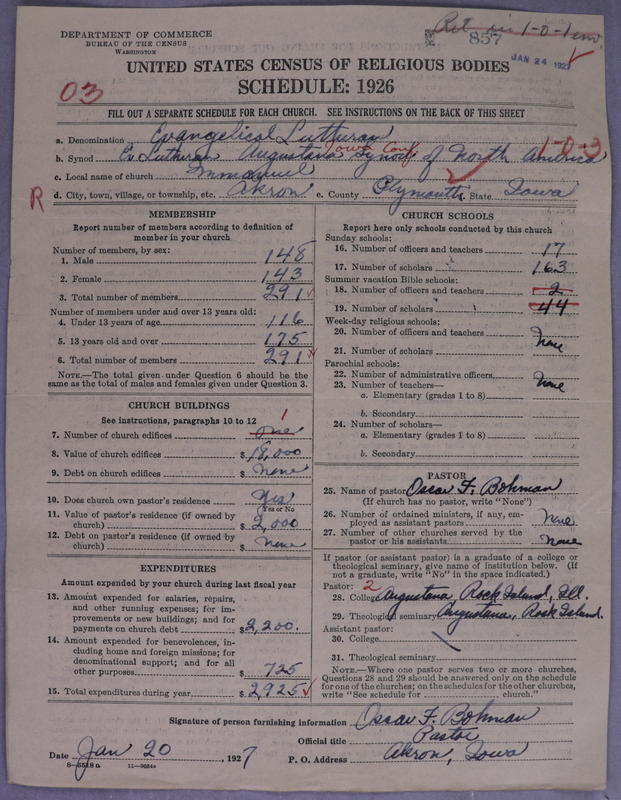 DEPARTMENT OF COMMERCE
BUREAU OF THE CENSUS
WASHINGTON
857
JAN 24 1927
UNITED STATES CENSUS OF RELIGIOUS BODIES
SCHEDULE: 1926
03
FILL OUT A SEPARATE SCHEDULE FOR EACH CHURCH. SEE INSTRUCTIONS ON THE BACK OF THIS SHEET
a. Denomination Evangelical Lutheran
1-0-3
Iowa Conf.
b. Synod Ev. Lutheran Augustana Synod of North America
c. Local name of church Immanuel
R
d. City, town, village, or township, etc. Akron e. County Plymouth State Iowa
MEMBERSHIP
Report number of members according to definition of
member in your church
Number of members, by sex:
1. Male 148
2. Female 143
3. Total number of members 291
Number of members under and over 13 years old:
4. Under 13 years of age 116
5. 13 years old and over 175
6. Total number of members 291
NOTE.—The total given under Question 6 should be the
same as the total of males and females given under Question 3.
CHURCH BUILDINGS
See instructions, paragraphs 10 to 12
1
7. Number of church edifices one
8. Value of church edifices $18,000
9. Debt on church edifices $ none
10. Does church own pastor's residence Yes
Yes or No
11. Value of pastor's residence (if owned by
church) $2,000
12. Debt on pastor's residence (if owned by
church) $ none
EXPENDITURES
Amount expended by your church during last fiscal year
13. Amount expended for salaries, repairs,
and other running expenses; for im-
provements or new buildings; and for
payments on church debt $2,200.
14. Amount expended for benevolences, in-
cluding home and foreign missions; for
denominational support; and for all
other purposes $ 725
15. Total expenditures during year $2925
CHURCH SCHOOLS
Report here only schools conducted by this church
Sunday schools:
16. Number of officers and teachers 17
17. Number of scholars 163
Summer vacation Bible schools:
18. Number of officers and teachers 2
19. Number of scholars 44
Week-day religious schools:
20. Number of officers and teachers none
21. Number of scholars
Parochial schools:
22. Number of administrative officers none
23. Number of teachers—
a. Elementary (grades 1 to 8)
b. Secondary
24. Number of scholars—
a. Elementary (grades 1 to 8)
b. Secondary
PASTOR
25. Name of pastor Oscar F. Bohman
(If church has no pastor, write "None")
26. Number of ordained ministers, if any, em-
ployed as assistant pastors none
27. Number of other churches served by the
pastor or his assistants none
If pastor (or assistant pastor) is a graduate of a college or
theological seminary, give name of institution below. (If
not a graduate, write "No" in the space indicated.)
Pastor: 2
28. College Augustana, Rock Island, Ill.
29. Theological seminary Augustana, Rock Island.
Assistant pastor:
30. College
31. Theological seminary
NOTE.—Where one pastor serves two or more churches,
Questions 28 and 29 should be answered only on the schedule
for one of the churches; on the schedules for the other churches,
write "See schedule for church."
Signature of person furnishing information Oscar F. Bohman
Official title Pastor
Date Jan 20, 1927 P. O. Address Akron, Iowa